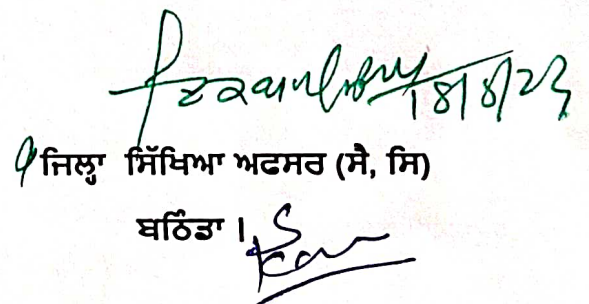 18/8/23
ਜਿਲ੍ਹਾ ਸਿੱਖਿਆ ਅਫਸਰ (ਸੈ, ਸਿ)
ਬਠਿੰਡਾ ।